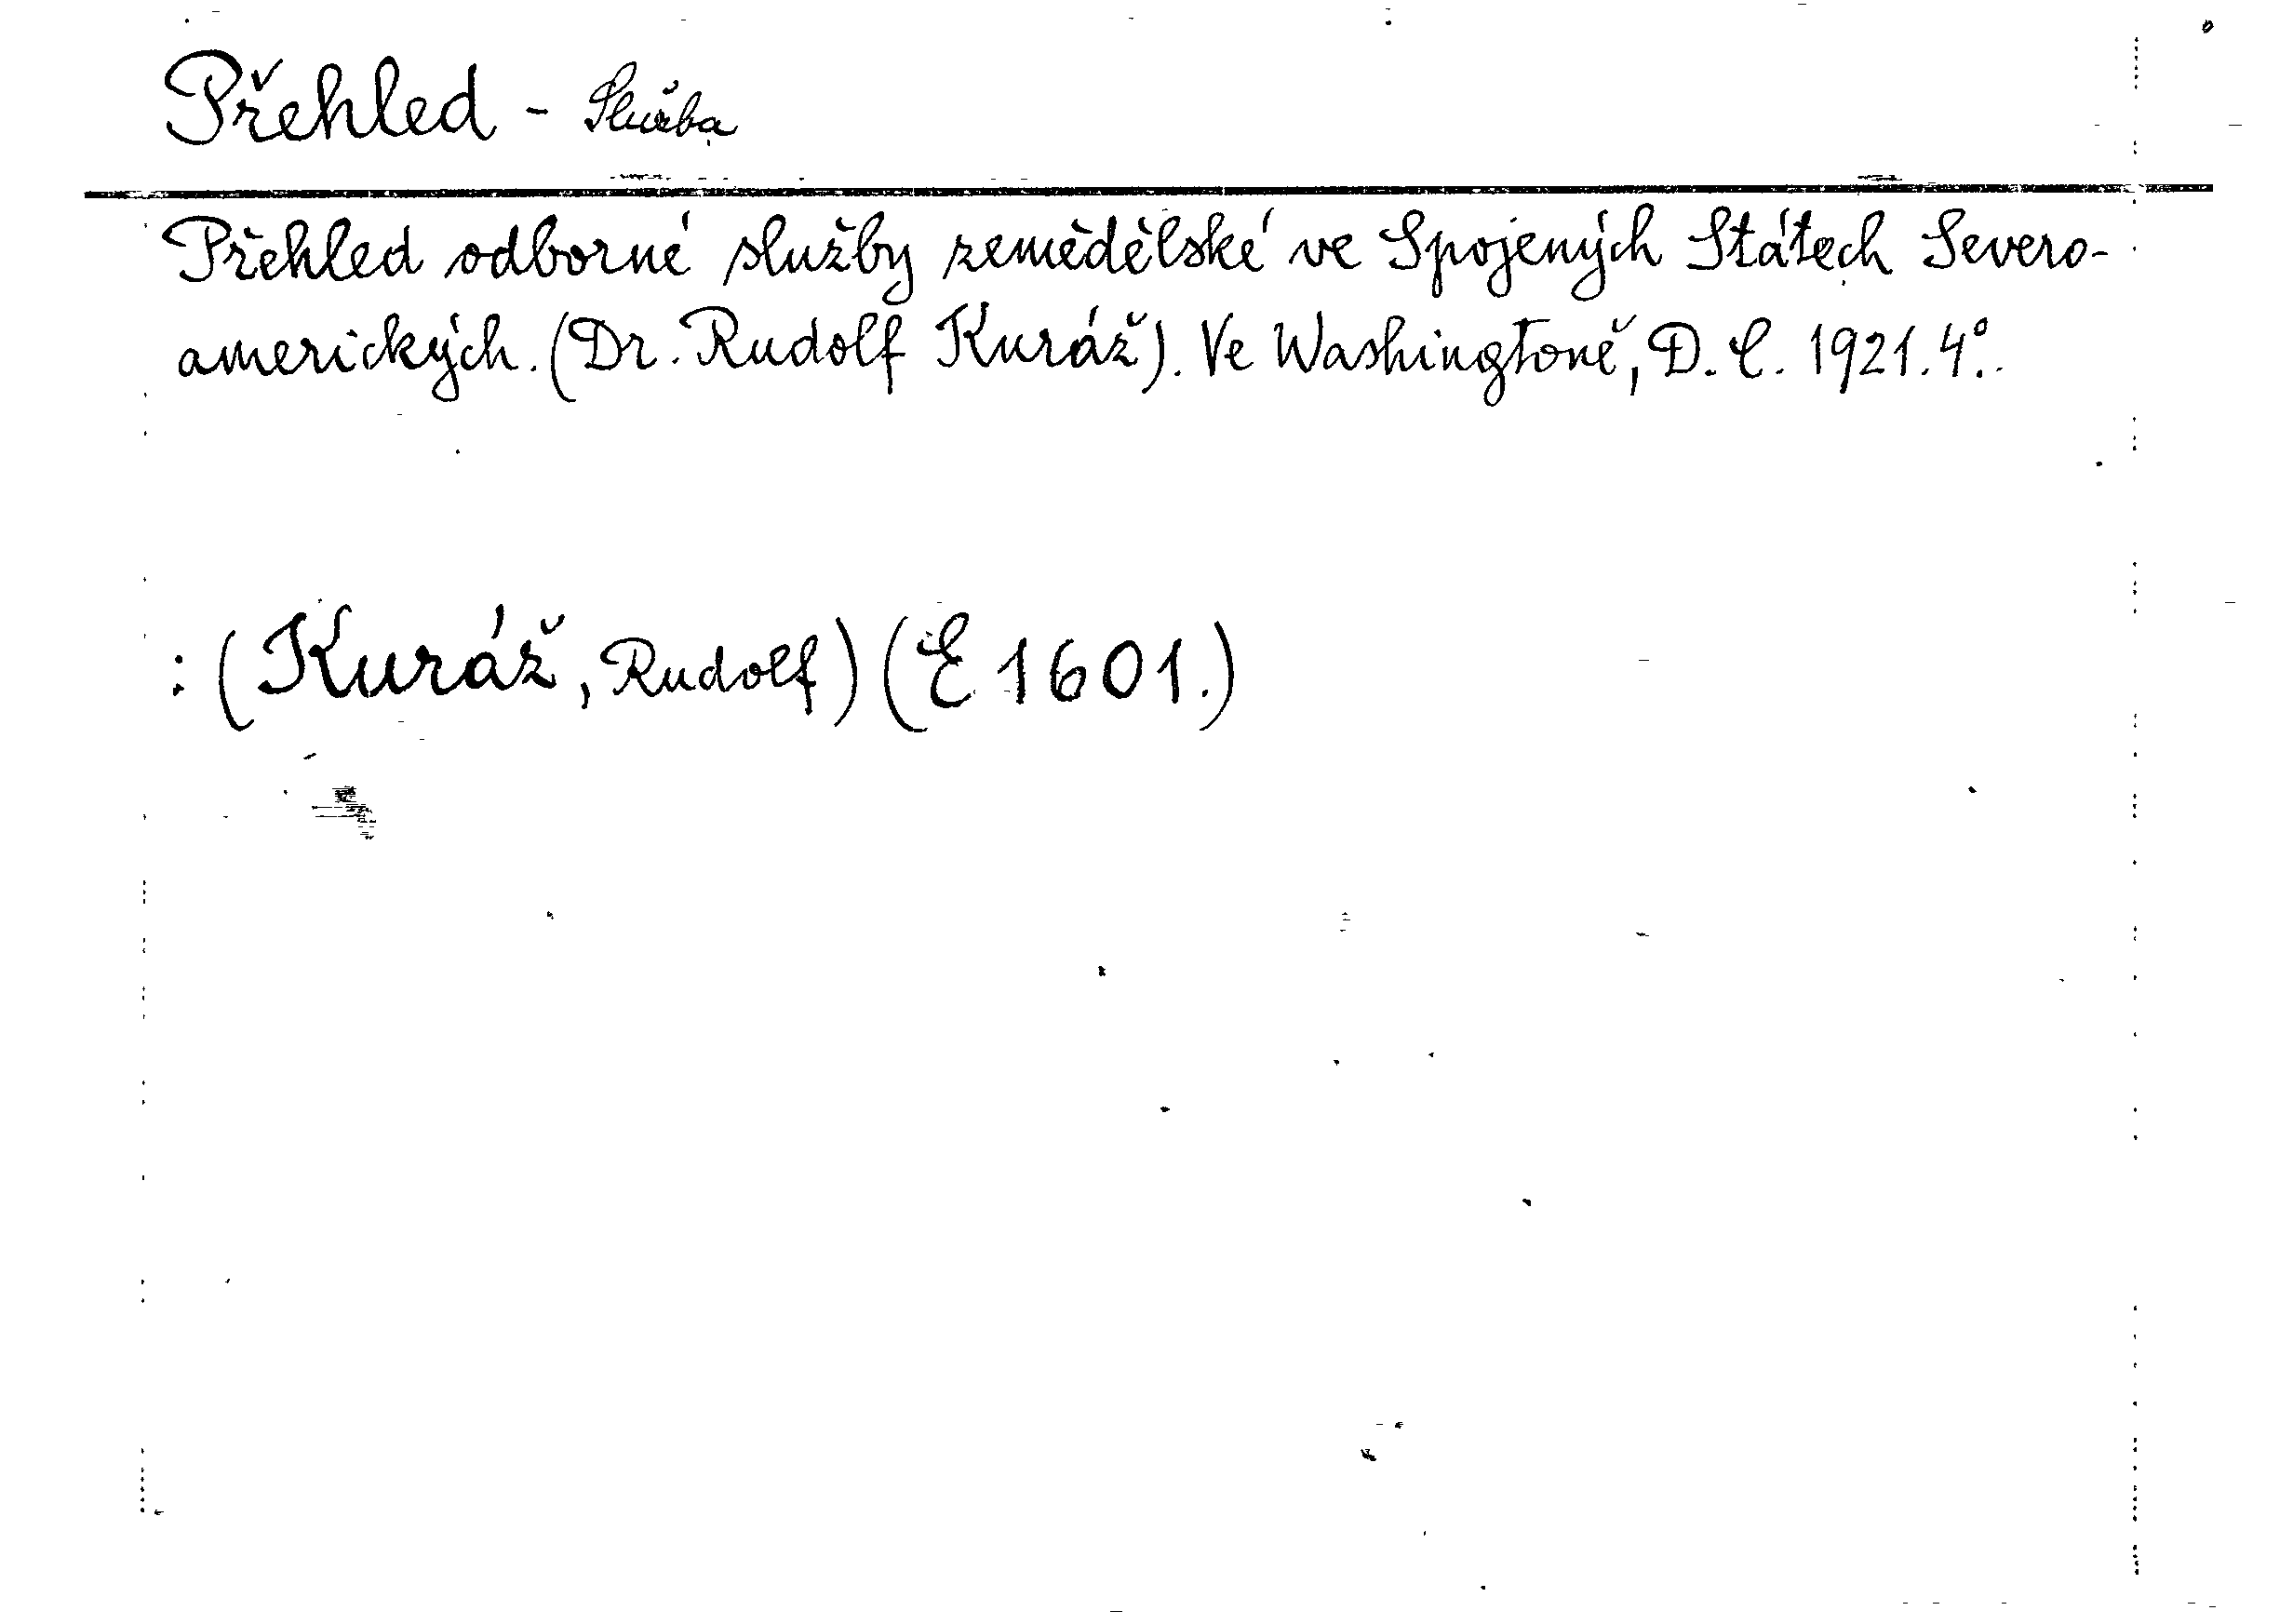 Přehled - Služba
Přehled odborné služby zemědělské ve Spojených Státech Severo-
amerických. (Dr. Rudolf Kuráž). Ve Washingtoně, D. C. 1921. 4°.
: (Kuráž, Rudolf) (E 1601.)